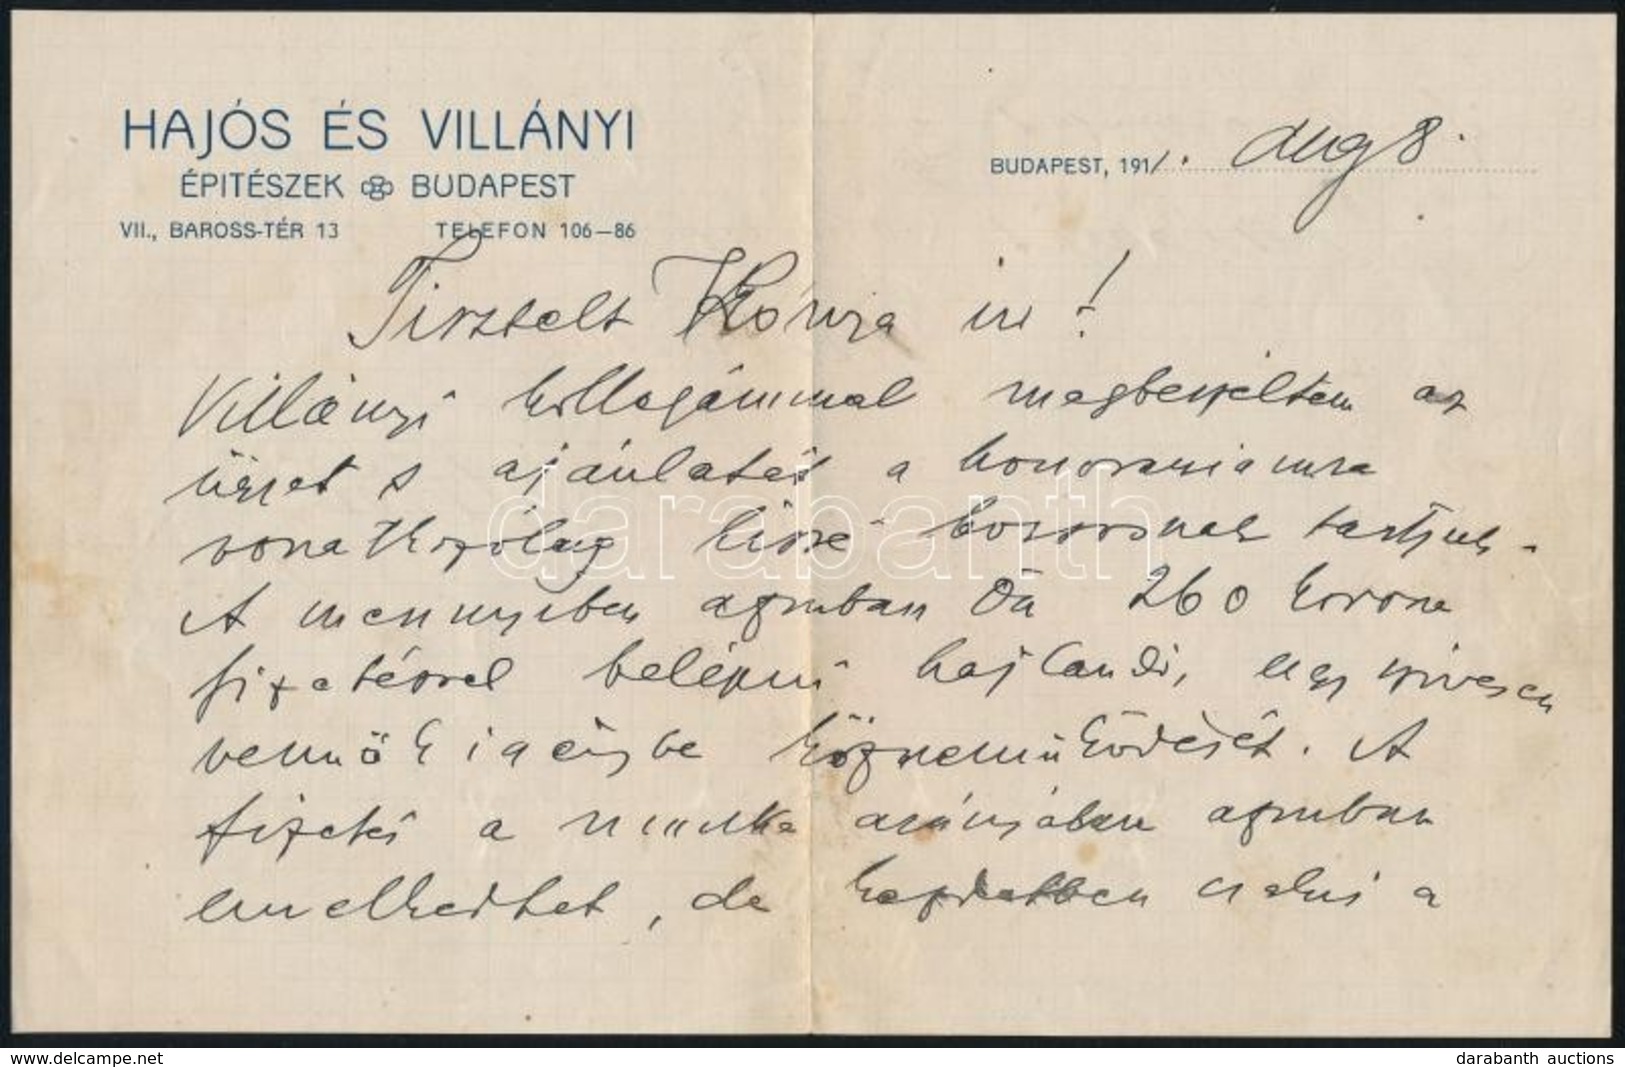 HAJÓS ÉS VILLÁNYI
ÉPITÉSZEK BUDAPEST
VII., BAROSS-TÉR 13 TELEFON 106–86
BUDAPEST, 1911. aug 8.
Tisztelt Kónya úr!
Villányi kollegámmal megbeszéltem az
ügyet s ajánlatát a honorariumra
vonatkozólag kissé borsosnak tartjuk.
A mennyiben azonban Ön 260 korona
fizetéssel belépni hajlandó, úgy szívesen
vennők igénybe közreműködését. A
fizetés a munka arányában azonban
emelkedhet, de kezdetben a
darabanth
www.delcampe.net
darabanth auctions